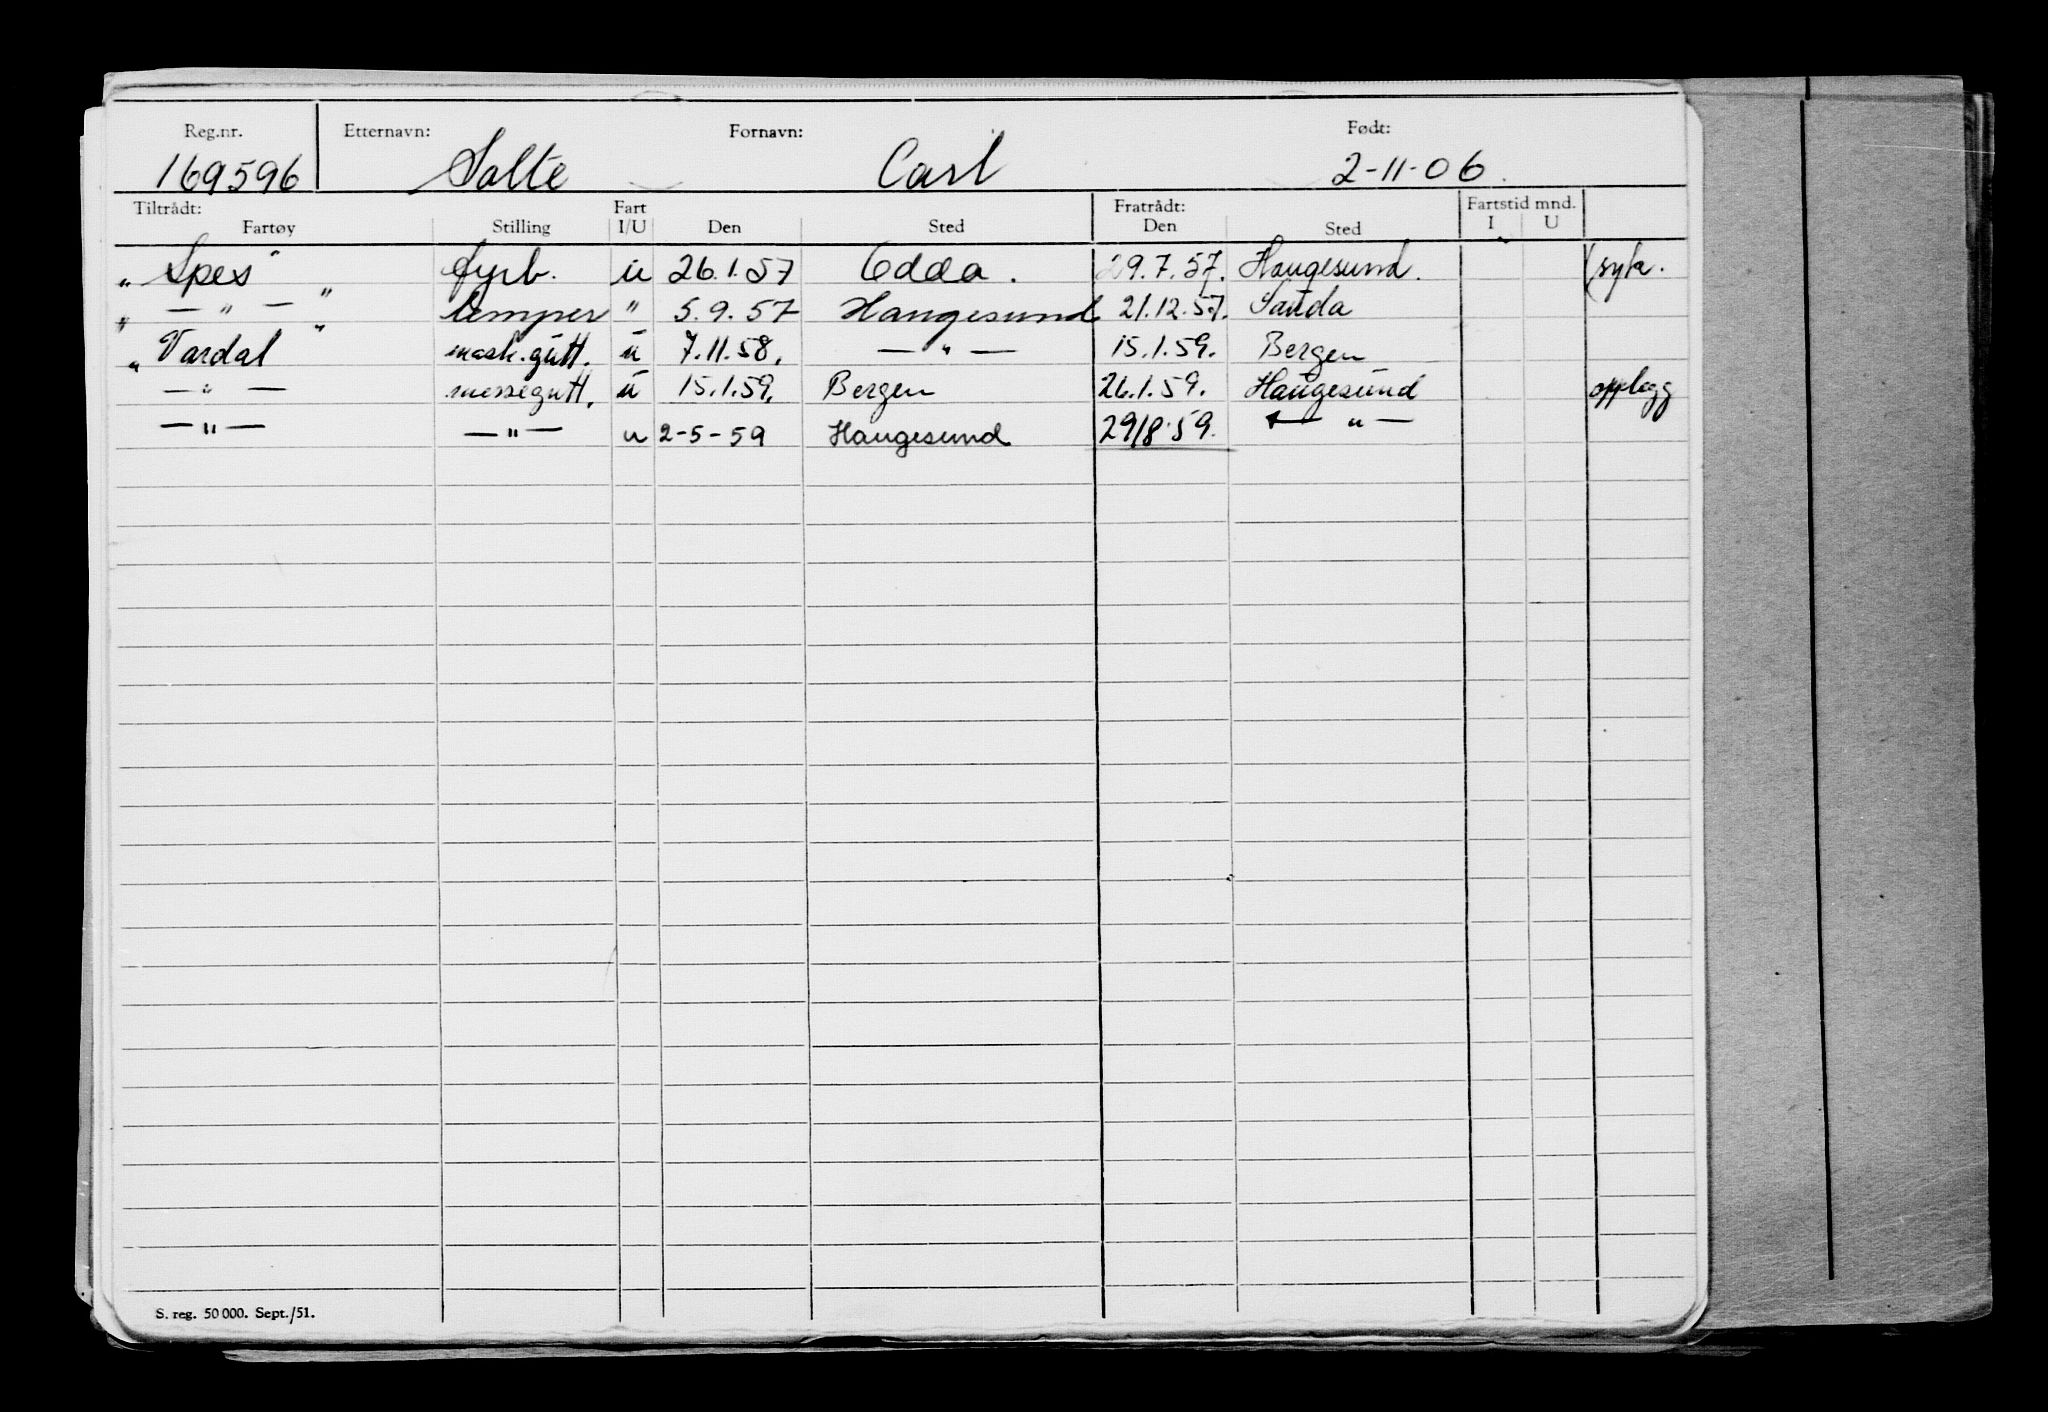 Reg.nr. Etternavn: Fornavn: Født:
169596 Salte Carl 2-11-06.
Tiltrådt: Fart Fratrådt: Fartstid mnd.
Fartøy Stilling I/U Den Sted Den Sted I U
"Spes" fyrb. u 26.1.57 Odda. 29.7.57. Haugesund. (syk.
" — " — " lemper " 5.9.57 Haugesund 21.12.57. Sauda
"Vardal" mask.gutt. u 7.11.58. — " — 15.1.59. Bergen
— " — messegutt. u 15.1.59. Bergen 26.1.59. Haugesund opplegg
— " — — " — u 2-5-59 Haugesund 29/8.59. — " —
S. reg. 50 000. Sept./51.